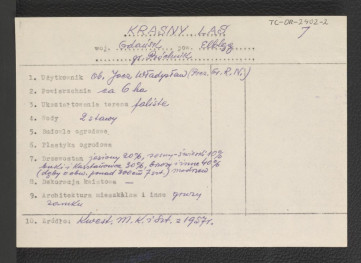 TC-OII-2402-2
KRASNY LAS
woj. Gdańsk pow. Elbląg
1. Użytkownik Ob. Jocz Władysław (Prez. Gr. R. N.)
2. Powierzchnia ca 6 ha
3. Ukształtowanie terenu faliste
4. Wody 2 stawy
5. Budowle ogrodowe
6. Plastyka ogrodowa
7. Drzewostan jesiony 20%, sosny-świerki 10%
buki i kasztanowce 30%, i inne 40%
(dęby o obw. ponad 400 cm 7 szt.)
8. Dekoracja kwiatowa —
9. Architektura mieszkalna i inna gruzy
zamku
10. Źródła: Kwest. M. K. i Szt. z 1957 r.